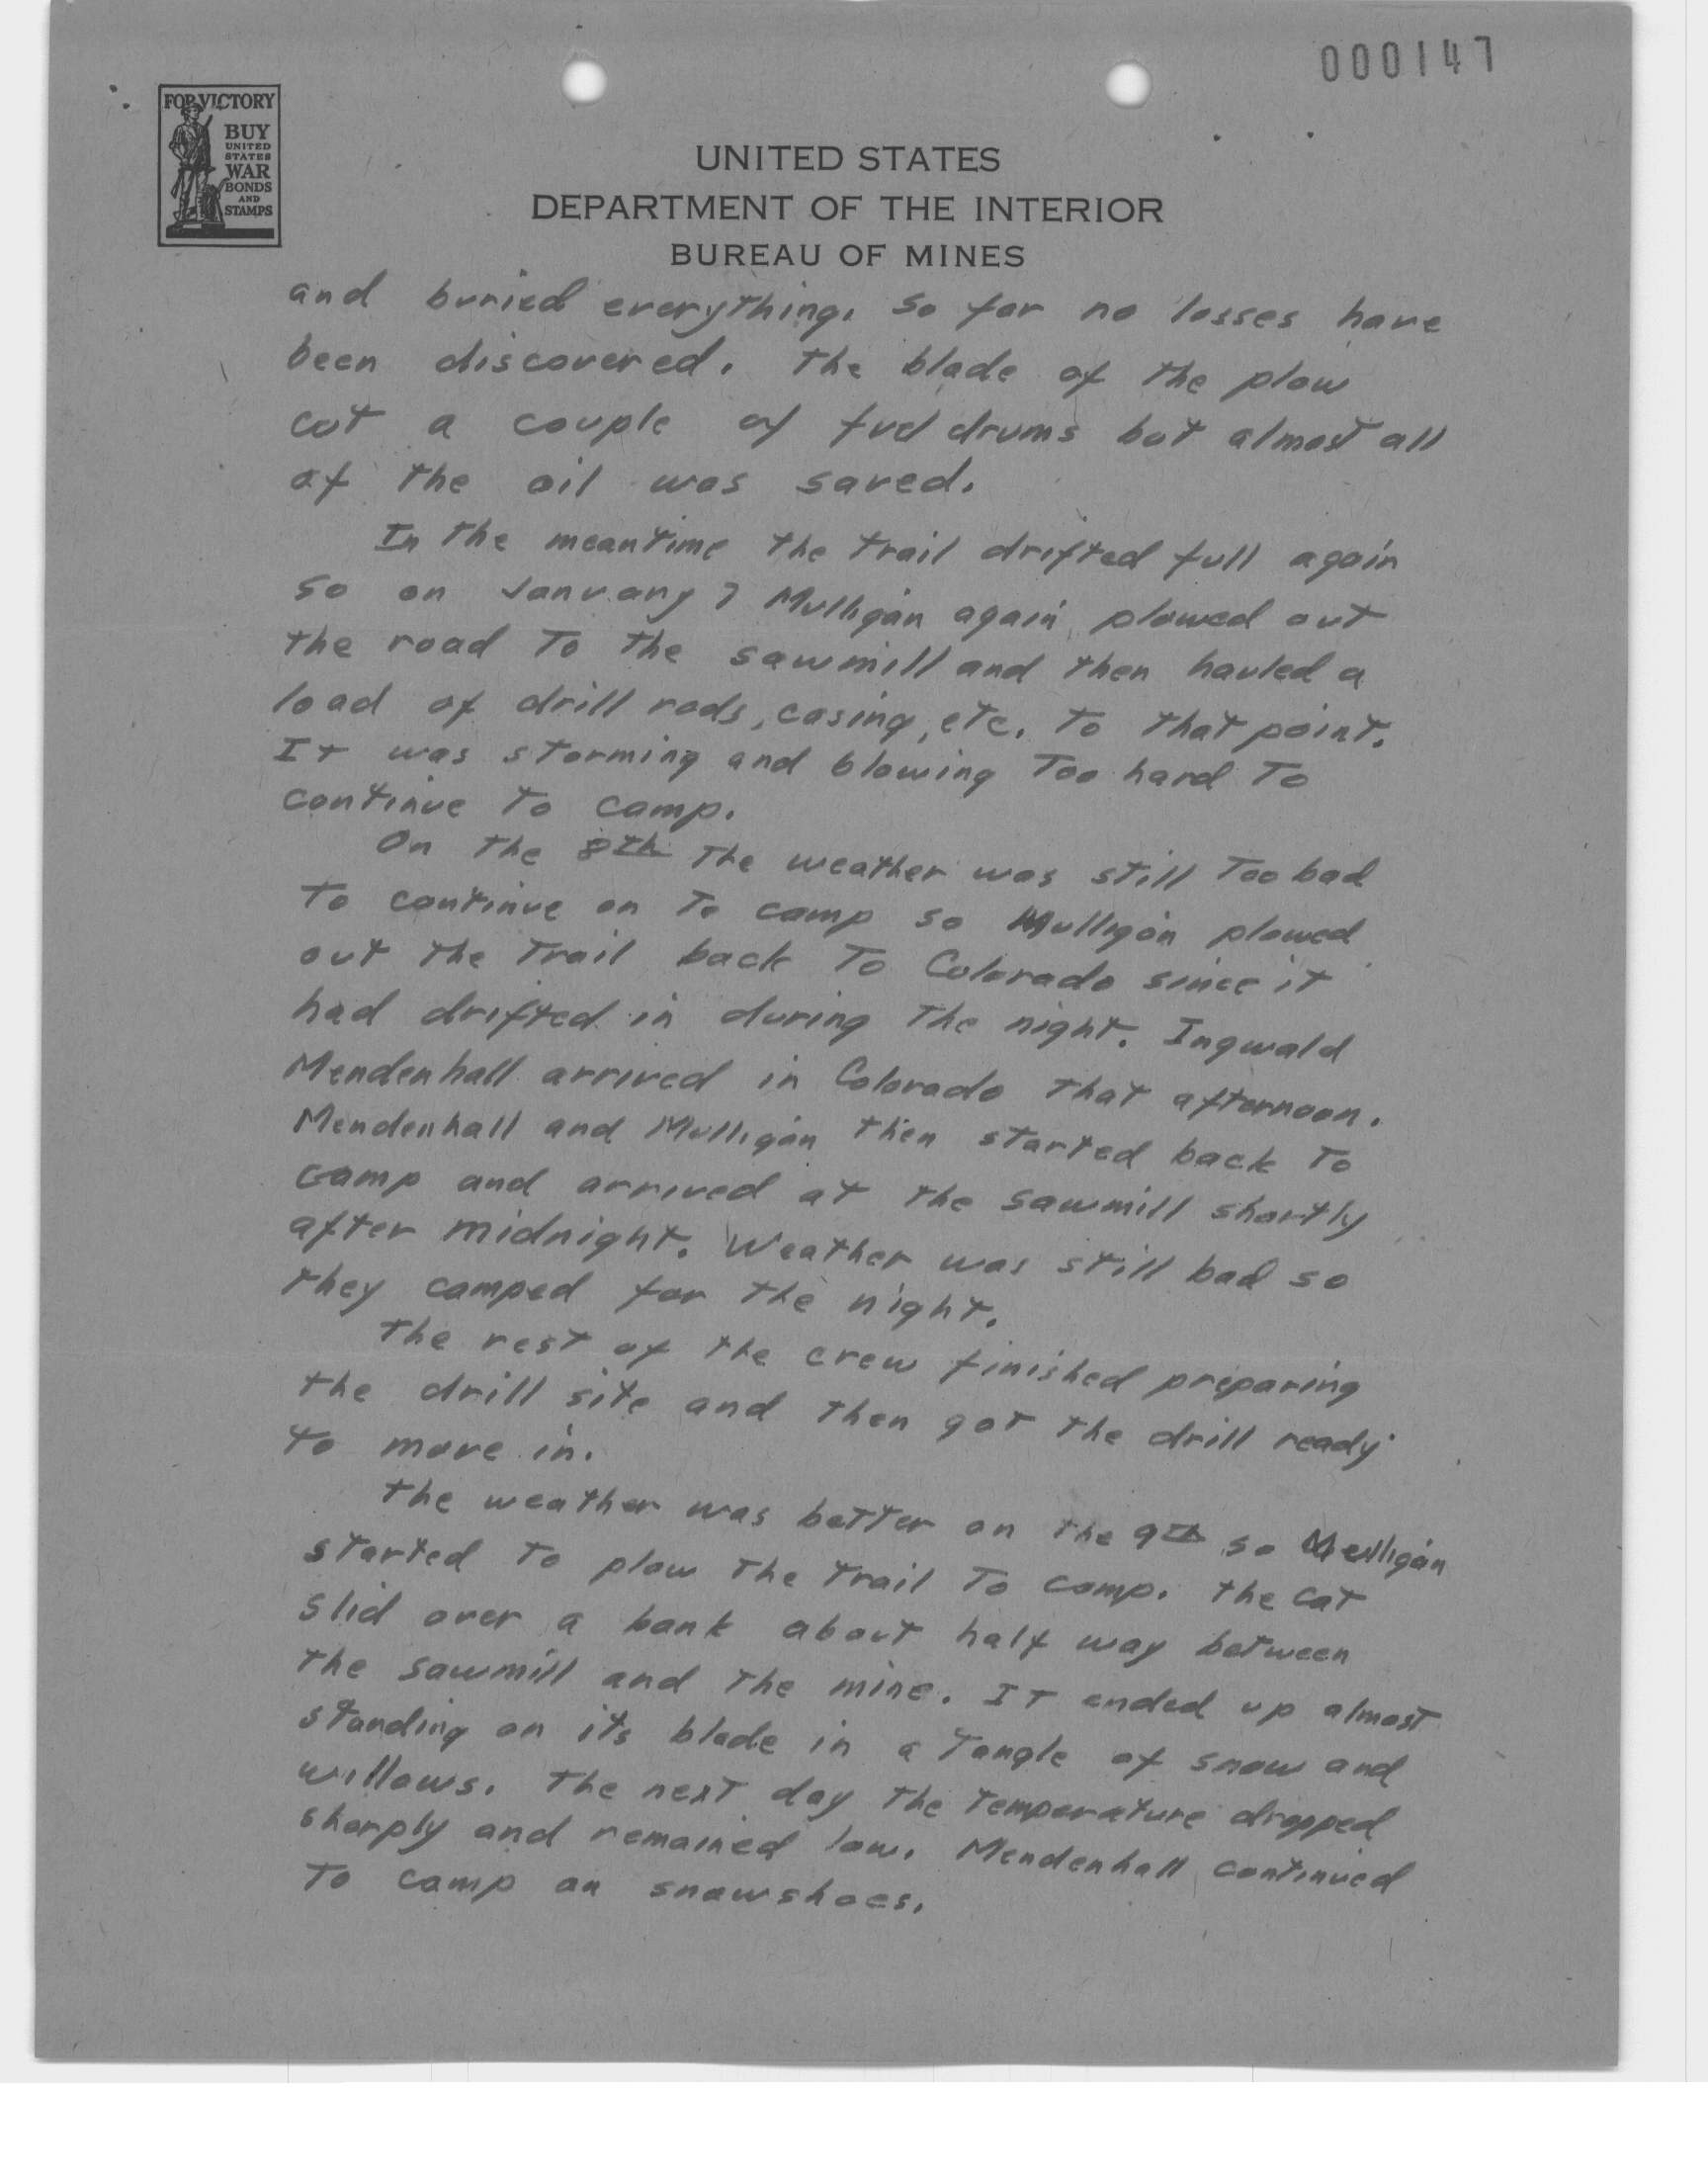 000147
FOR VICTORY
BUY
UNITED
STATES
WAR
BONDS
AND
STAMPS
UNITED STATES
DEPARTMENT OF THE INTERIOR
BUREAU OF MINES
and buried everything. So far no losses have
been discovered. The blade of the plow
cut a couple of fuel drums but almost all
of the oil was saved.
In the meantime the trail drifted full again
so on January 7 Mulligan again plowed out
the road to the sawmill and then hauled a
load of drill rods, casing, etc. to that point.
It was storming and blowing too hard to
continue to camp.
On the 8th the weather was still too bad
to continue on to camp so Mulligan plowed
out the trail back to Colorado since it
had drifted in during the night. Ingwald
Mendenhall arrived in Colorado that afternoon.
Mendenhall and Mulligan then started back to
camp and arrived at the sawmill shortly
after midnight. Weather was still bad so
they camped for the night.
The rest of the crew finished preparing
the drill site and then got the drill ready
to move in.
The weather was better on the 9th so Mulligan
started to plow the trail to camp. The cat
slid over a bank about half way between
the sawmill and the mine. It ended up almost
standing on its blade in a tangle of snow and
willows. The next day the temperature dropped
sharply and remained low. Mendenhall continued
to camp on snowshoes.